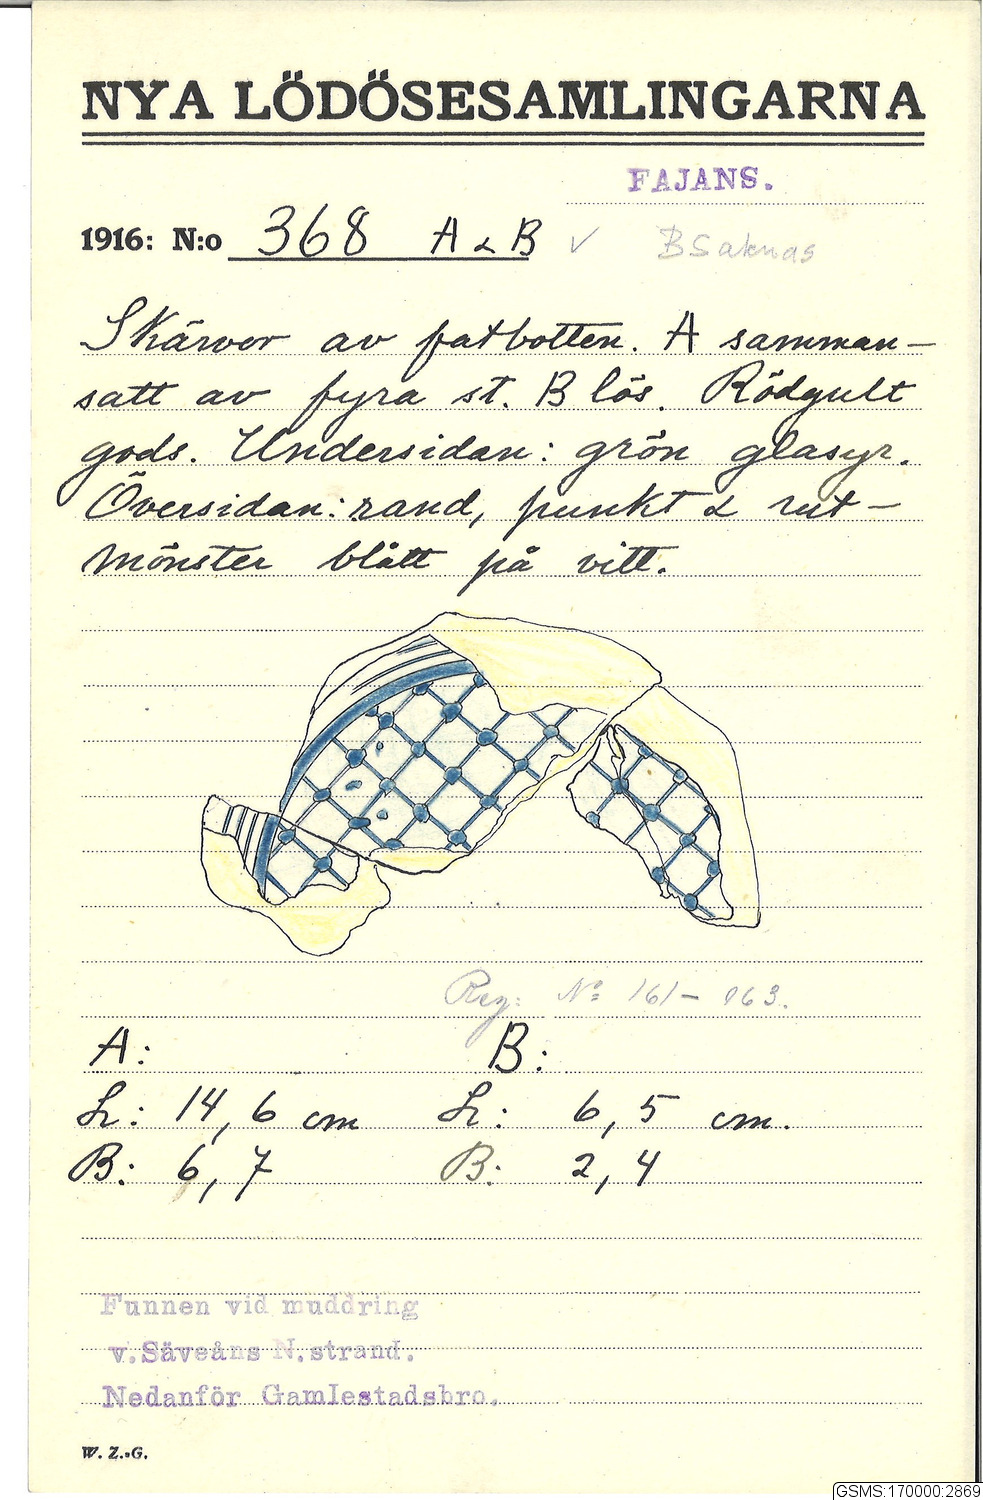 NYA LÖDÖSESAMLINGARNA
FAJANS.
1916: N:o 368 A & B ✓ B Saknas
Skärvor av fatbotten. A samman-
satt av fyra st. B lös. Rödgult
gods. Undersidan: grön glasyr.
Översidan: rand, punkt & rut-
mönster blått på vitt.
Reg: Nº 161-163.
A: B:
L: 14,6 cm L: 6,5 cm.
B: 6,7 B: 2,4
Funnen vid muddring
v. Säveåns N. strand.
Nedanför Gamlestadsbro.
W. Z.-G.
GSMS:170000:2869